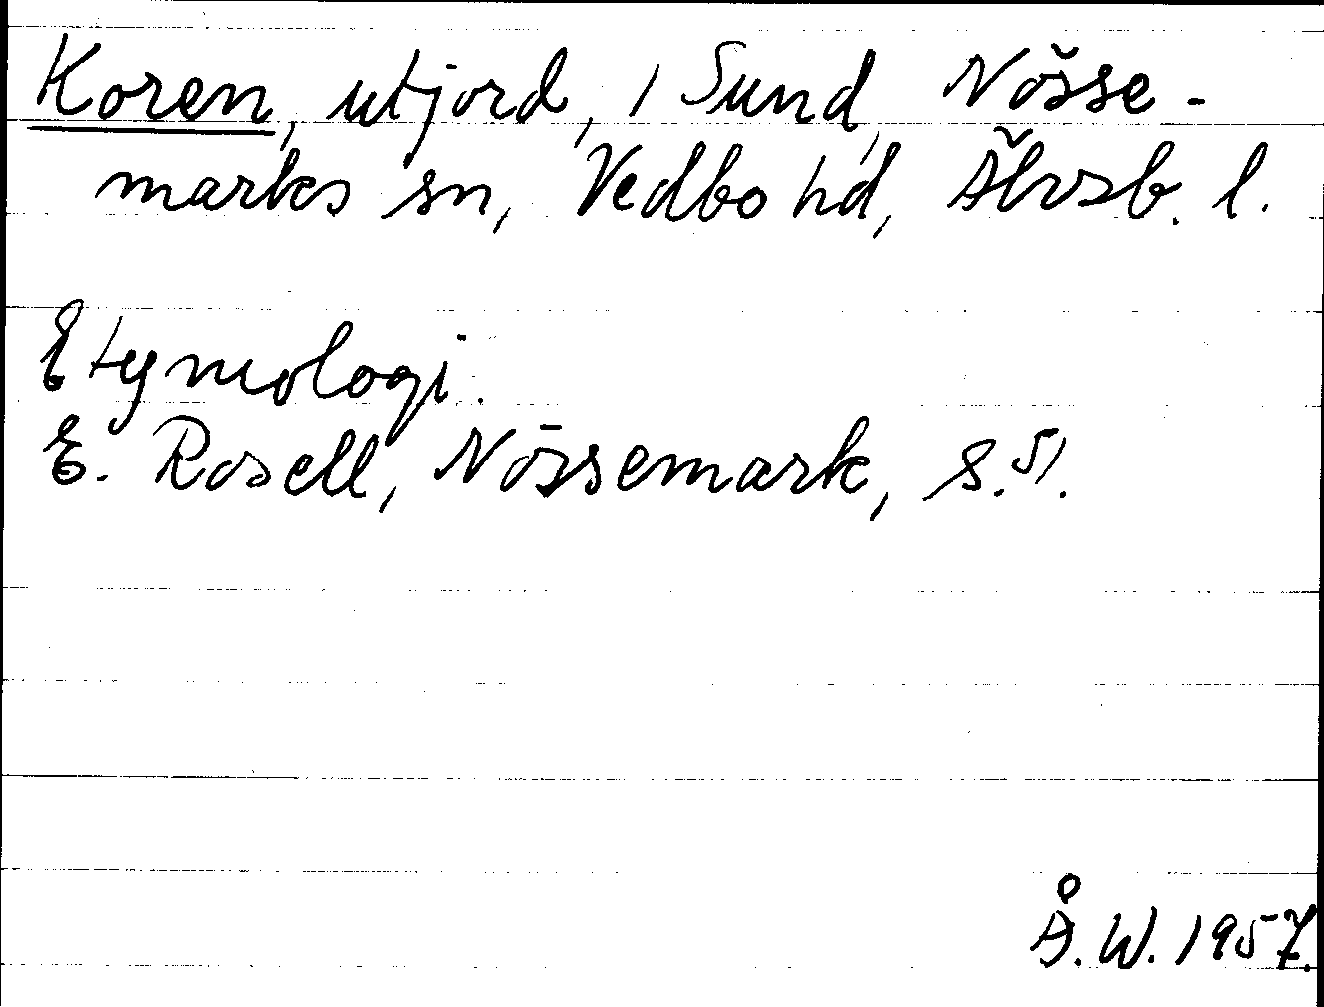 Koren, utjord, i Sund, Nösse-
marks sn, Vedbo hd, Älvsb. l.
Etymologi.
E. Rosell, Nössemark, s. 51.
Å. W. 1957.